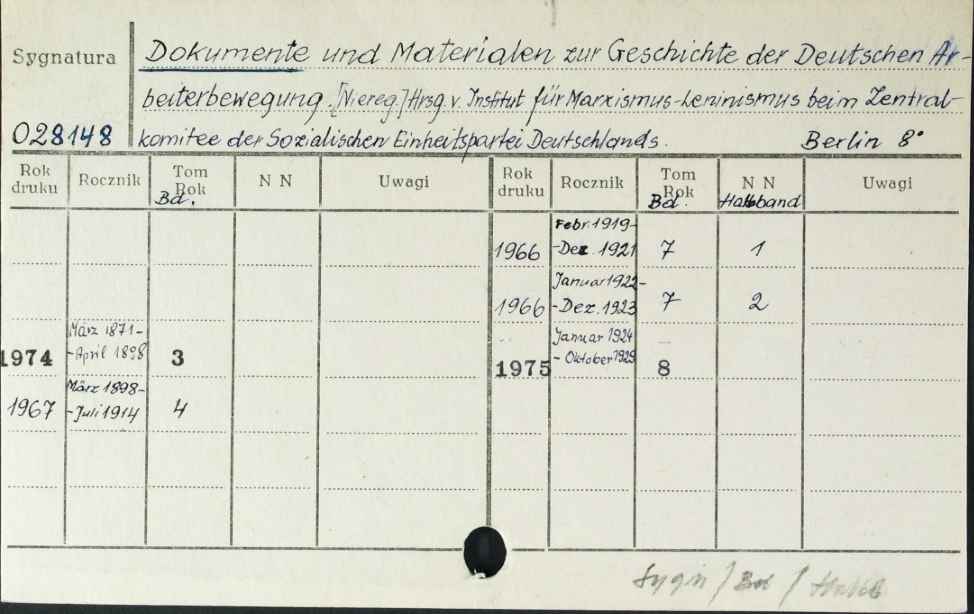 Sygnatura
Dokumente und Materialen zur Geschichte der Deutschen Ar-
beiterbewegung. [Niereg.] Hrsg. v. Institut für Marxismus-Leninismus beim Zentral-
028148
komitee der Sozialischen Einheitspartei Deutschlands. Berlin 8°
Rok druku Rocznik Tom Rok Bd. N N Uwagi Rok druku Rocznik Tom Rok Bd. N N Halbband Uwagi
Febr. 1919-
1966 -Dez. 1921 7 1
Januar 1922-
1966 -Dez. 1923 7 2
März 1871-
1974 -April 1898 3
Januar 1924
1975 - Oktober 1929 8
März 1898-
1967 -Juli 1914 4
Sygn / Bd /